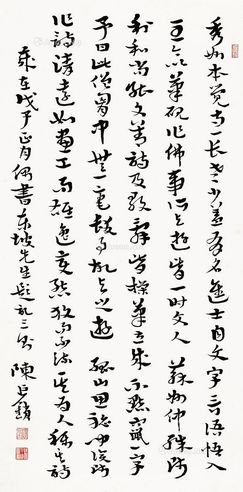 秀州本覺寺一長老少蓋有名進士自文字言語悟入
至今以筆硯作佛事所與遊皆一時文人 蘇州仲殊師
利和尚能文善詩及歌辭皆操筆立成不點竄一字
予曰此僧胸中無一毫髮事故與之遊 孤山思聰聞復師
作詩清遠如畫工而雄逸變態放而不流其為人稱其詩
歲在戊子正月偶書東坡先生題記三則 陳巨鎖